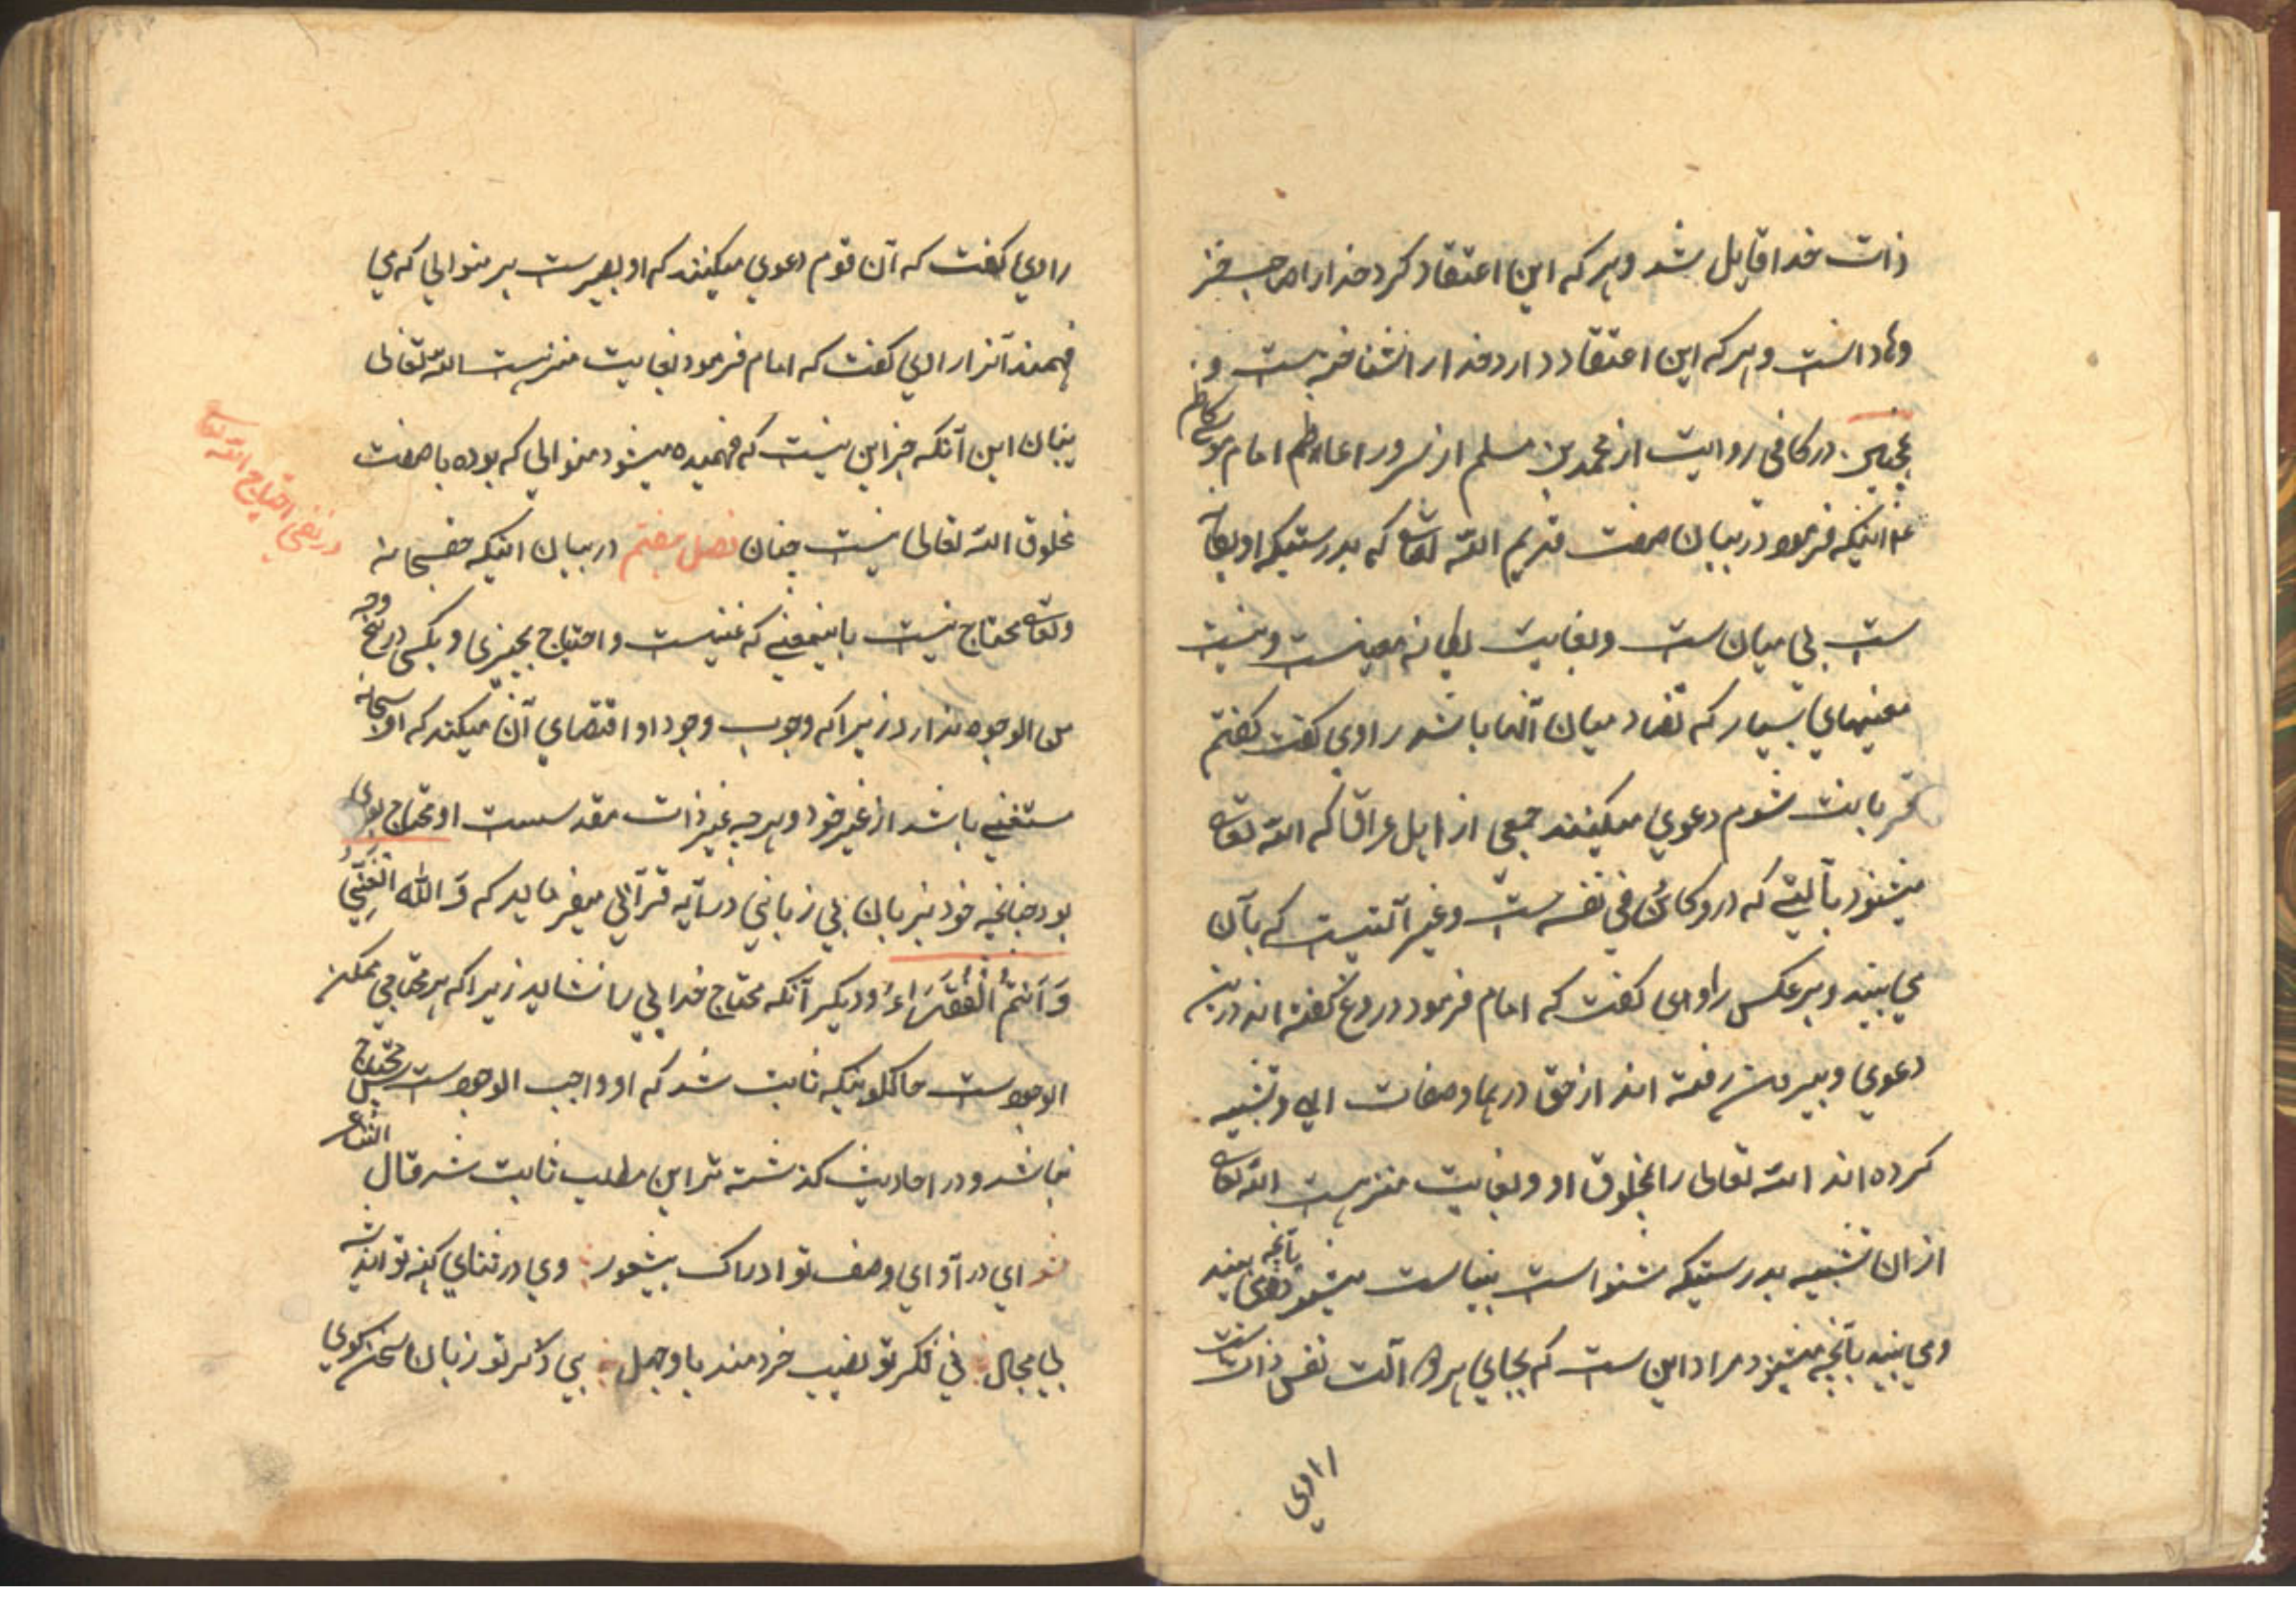 ذات خدا قایل شد و هر که این اعتقاد کرد خدا را صاحب جز
و ماده دانست و هر که این اعتقاد دارد خدا را نشناخته است و
همچنین در کافی روایت از محمد بن مسلم از سرور اعاظم امام موسی کاظم
ع اینکه فرمود در بیان صفت قدیم الله تعالی که بدرستیکه او یگانه
ست بی میان ست و بغایت یگانه معنیست و نیست
معنیهای بسیار که تضاد میان آنها باشد راوی گفت گفتم
قربانت شوم دعوی میکنند جمعی از اهل عراق که الله تعالی
میشنود بآلتی که درو کائن فی نفسه ست و غیر آلتیست که بآن
می بیند و برعکس راوی گفت که امام فرمود دروغ گفته اند درین
دعوی و بیرون رفته اند از حق در صفات الهی و تشبیه
کرده اند الله تعالی را بمخلوق او و بغایت منزه است الله تعالی
از ان تشبیه بدرستیکه شنواست بیناست میشنود بآنچه می بیند
و می بیند بآنچه میشنود مراد این ست که بجای هر دو آلت نفس ذات اوست
راوی
راوی گفت که آن قوم دعوی میکنند که او بصیرست بر منوالی که می
فهمند آنرا راوی گفت که امام فرمود بغایت منزه است الله تعالی
بیان این آنکه جز این نیست که فهمیده میشود منوالی که بوده با صفت
مخلوق الله تعالی نیست چنان فصل هفتم در بیان اینکه حق سبحانه
در نفی احتیاج الله تعالی
و تعالی محتاج نیست باینمعنی که غنیست و احتیاج بچیزی و بکسی در هیچ وجه
من الوجوه ندارد زیرا که وجوب وجود او اقتضای آن میکند که او سبحانه
مستغنی باشد از غیر خود و هر چه غیر ذات مقدسست او محتاج بوی
بود چنانچه خود بزبان بی زبانی در آیه قرآنی میفرماید که وَالله الغَنِیُّ
وَ اَنتُمُ الْفُقَرَاءُ و دیگر آنکه محتاج خدایی را نشاید زیرا که هر محتاجی ممکن
الوجودست حاکلونیکه ثابت شد که او واجب الوجودست پس محتاج
نباشد و در احادیث گذشته نیز این مطلب ثابت شد قال الشاعر
ای در آوای وصف تو ادراک بیشعور وی در ثنای کنه تو اندیشه
بی مجال فی فکر تو نصیب خردمند با وجهل بی ذکر تو زبان سخن گوی